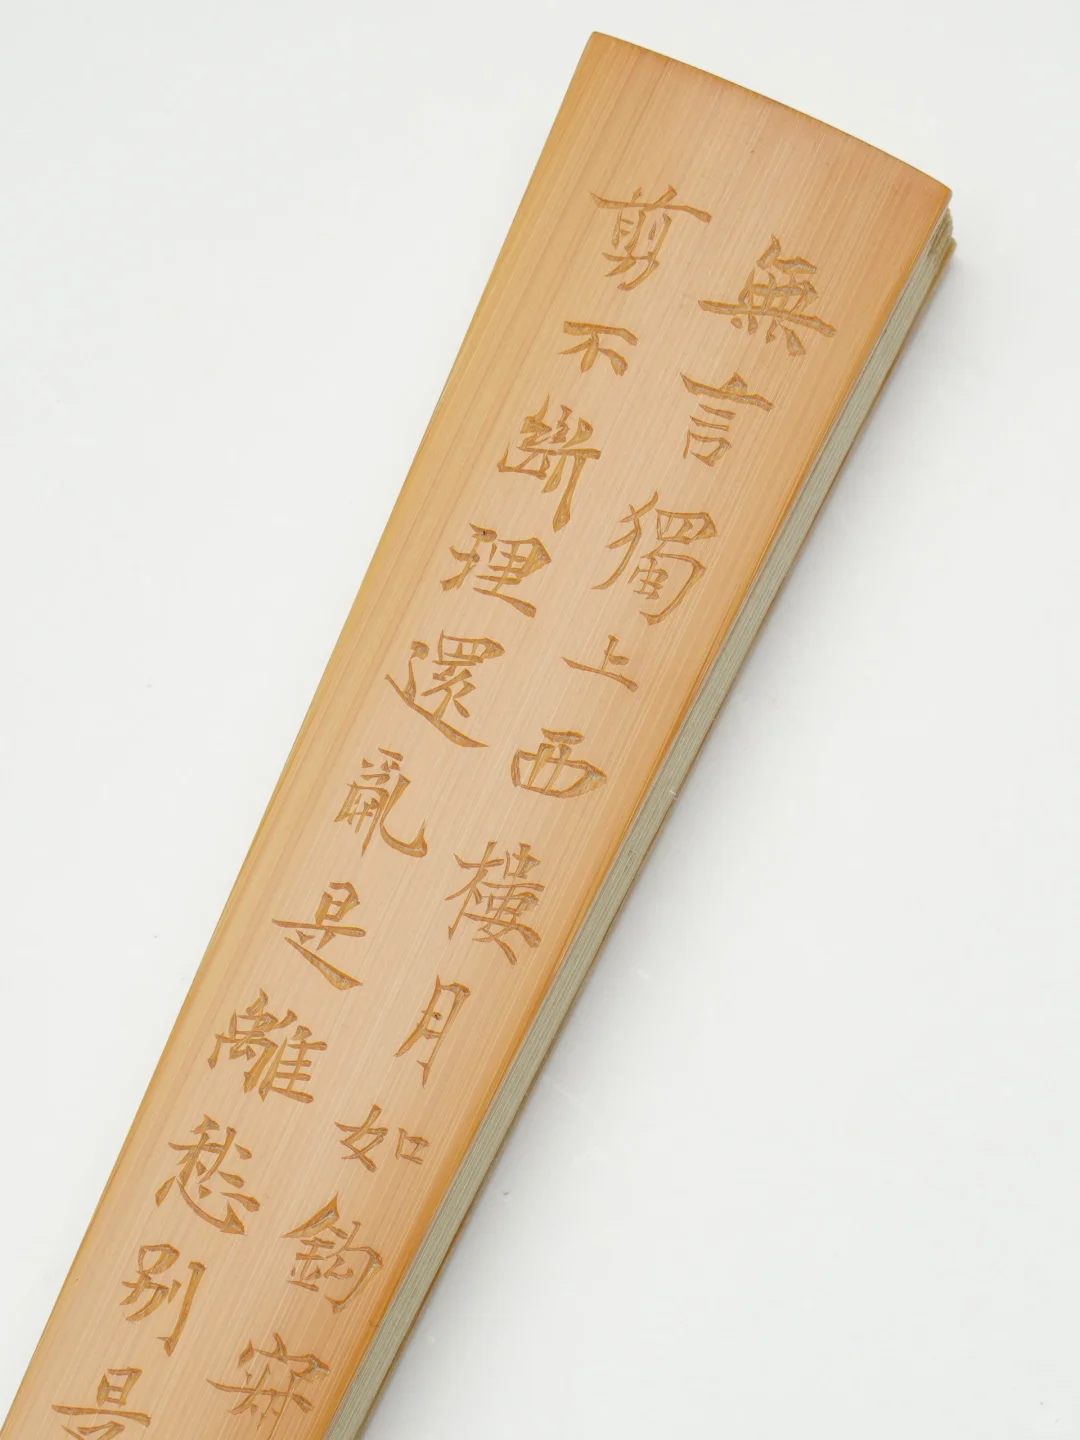 無言獨上西樓月如鈎寂
剪不斷理還亂是離愁別是